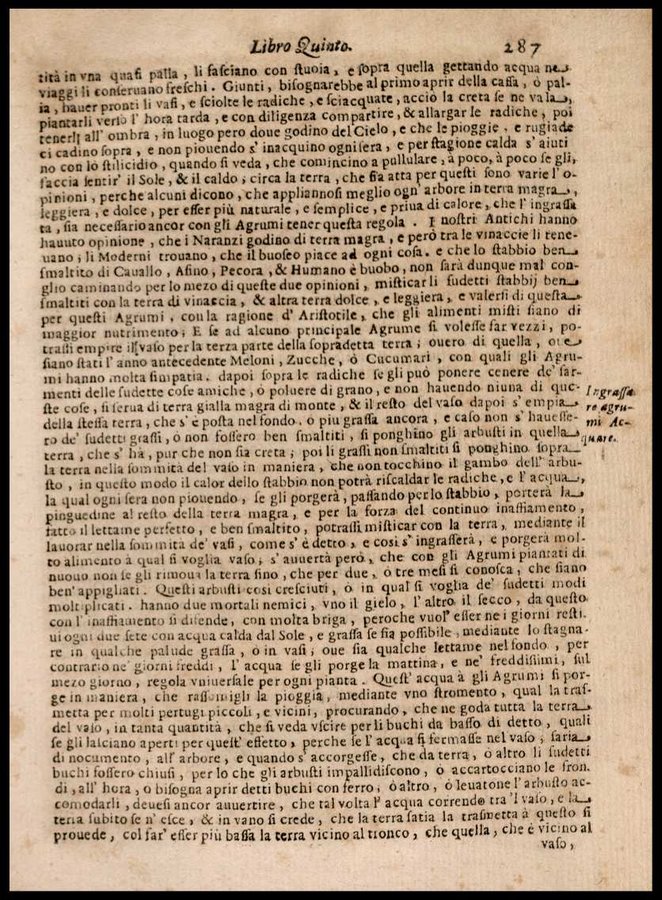 Libro Quinto. 287
tità in vna quasi palla, li fasciano con stuoia, e sopra quella gettando acqua ne
viaggi li conseruano freschi. Giunti, bisognarebbe al primo aprir della cassa, ò pal-
ia, hauer pronti li vasi, e sciolte le radiche, e sciacquate, acciò la creta se ne vada,
piantarli verso l' hora tarda, e con diligenza compartire, & allargar le radiche, poi
tenerli all' ombra, in luogo però doue godino del Cielo, e che le pioggie, e rugiade
ci cadino sopra, e non piouendo s' inacquino ogni sera, e per stagione calda s' aiuti
no con lo stilicidio, quando si veda, che comincino a pullulare, à poco, à poco se gli
faccia sentir' il Sole, & il caldo; circa la terra, che sia atta per questi sono varie l' o-
pinioni, perche alcuni dicono, che appliannosi meglio ogn' arbore in terra magra,
leggiera, e dolce, per esser più naturale, e semplice, e priua di calore, che l' ingrassa
ta, sia necessario ancor con gli Agrumi tener questa regola. I nostri Antichi hanno
hauuto opinione, che i Naranzi godino di terra magra, e però tra le vinaccie li tene-
uano; li Moderni trouano, che il buoseo piace ad ogni cosa. e che lo stabbio ben
smaltito di Cauallo, Asino, Pecora, & Humano è buobo, non sarà dunque mal con-
glio caminando per lo mezo di queste due opinioni, misticar li sudetti stabbij ben
smaltiti con la terra di vinaccia, & altra terra dolce, e leggiera, e valersi di questa
per questi Agrumi, con la ragione d' Aristotile, che gli alimenti misti siano di
maggior nutrimento; E se ad alcuno principale Agrume si volesse far vezzi, po-
trassi empire il vaso per la terza parte della sopradetta terra; ouero di quella, oue
siano stati l' anno antecedente Meloni, Zucche, ò Cucumari, con quali gli Agru-
mi hanno molta simpatia. dapoi sopra le radiche se gli può ponere cenere de' sar-
menti delle sudette cose amiche, ò poluere di grano, e non hauendo niuna di que-
ste cose, si serua di terra gialla magra di monte, & il resto del vaso dapoi s' empia
della stessa terra, che s' è posta nel fondo. ò piu grassa ancora, e caso non s' hauesse-
ro de' sudetti grassi, ò non fossero ben smaltiti, si ponghino gli arbusti in quella
terra, che s' hà, pur che non sia creta; poi li grassi non smaltiti si ponghino sopra
la terra nella sommità del vaso in maniera, che non tocchino il gambo dell' arbu-
sto, in questo modo il calor dello stabbio non potrà riscaldar le radiche, e l' acqua,
la qual ogni sera non piouendo, se gli porgerà, passando per lo stabbio, porterà la
pinguedine al resto della terra magra, e per la forza del continuo inaffiamento,
fatto il lettame perfetto, e ben smaltito, potrassi misticar con la terra, mediante il
lauorar nella sommità de' vasi, come s' è detto, e così s' ingrasserà, e porgerà mol-
to alimento à qual si voglia vaso; s' auuertà però, che con gli Agrumi piantati di
nuouo non se gli rimoua la terra fino, che per due, ò tre mesi si conosca, che siano
ben' appigliati. Questi arbusti così cresciuti, ò in qual si voglia de' sudetti modi
moltiplicati. hanno due mortali nemici, vno il gielo, l' altro il secco, da questo
con l' inaffiamento si difende, con molta briga, peroche vuol' esser ne i giorni resti-
ui ogni due sete con acqua calda dal Sole, e grassa se sia possibile, mediante lo stagna-
re in qualche palude grassa, ò in vasi; oue sia qualche lettame nel fondo, per
contrario ne' giorni freddi, l' acqua se gli porge la mattina, e ne' freddissimi, sul
mezo giorno, regola vniuersale per ogni pianta. Quest' acqua à gli Agrumi si por-
ge in maniera, che rassomigli la pioggia, mediante vno stromento, qual la tras-
metta per molti pertugi piccoli, e vicini, procurando, che ne goda tutta la terra
del vaso, in tanta quantità, che si veda vscire per li buchi da basso di detto, quali
se gli lasciano aperti per quest' effetto, perche se l' acqua si fermasse nel vaso, saria
di nocumento, all' arbore, e quando s' accorgesse, che da terra, ò altro li sudetti
buchi fossero chiusi, per lo che gli arbusti impallidiscono, ò accartocciano le fron-
di, all' hora, o bisogna aprir detti buchi con ferro; ò altro, ò leuatone l' arbusto ac-
comodarli, deuesi ancor auuertire, che tal volta l' acqua correndo tra 'l vaso, e la
terra subito se n' esce, & in vano si crede, che la terra satia la trasmetta à questo si
prouede, col far' esser più bassa la terra vicino al tronco, che quella, che è vicino al
vaso,
Ingrassa
re agru-
mi Ac-
quare.